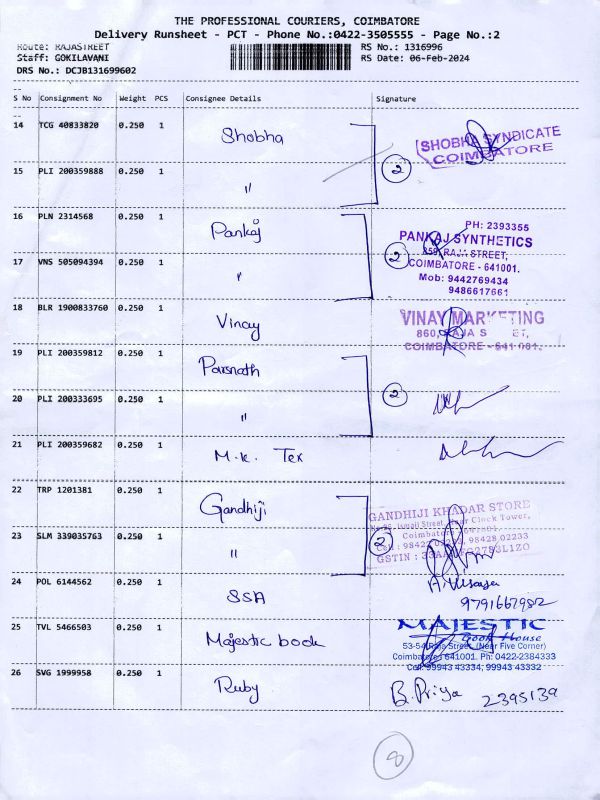 THE PROFESSIONAL COURIERS, COIMBATORE
Delivery Runsheet - PCT - Phone No.:0422-3505555 - Page No.:2
Route: RAJASTREET RS No.: 1316996
Staff: GOKILAVANI RS Date: 06-Feb-2024
DRS No.: DCJB131699602
S No Consignment No Weight PCS Consignee Details Signature
14 TCG 40833820 0.250 1 Shobha SHOBHA SYNDICATE
COIMBATORE
2
15 PLI 200359888 0.250 1 "
16 PLN 2314568 0.250 1 Pankaj PH: 2393355
PANKAJ SYNTHETICS
2 359, RAJA STREET,
17 VNS 505094394 0.250 1 " COIMBATORE - 641001.
Mob: 9442769434
9486617661
18 BLR 1900833760 0.250 1 Vinay VINAY MARKETING
860, RAJA S ET,
COIMBATORE - 641 001.
19 PLI 200359812 0.250 1 Parsnath
2
20 PLI 200333695 0.250 1 "
21 PLI 200359682 0.250 1 M.K. Tex
22 TRP 1201381 0.250 1 Gandhiji GANDHIJI KHADAR STORE
Ismail Street, Near Clock Tower,
Coimbatore - 641001.
23 SLM 339035763 0.250 1 " 2 98428 02233
GSTIN :
24 POL 6144562 0.250 1 SSA
9791667982
25 TVL 5466503 0.250 1 Majestic book MAJESTIC
Book House
53-54 Raja Street, (Near Five Corner)
Coimbatore 641001. Ph: 0422-2384333
Cell: 99943 43334, 99943 43332
26 SVG 1999958 0.250 1 Ruby B. Priya 2395139
8